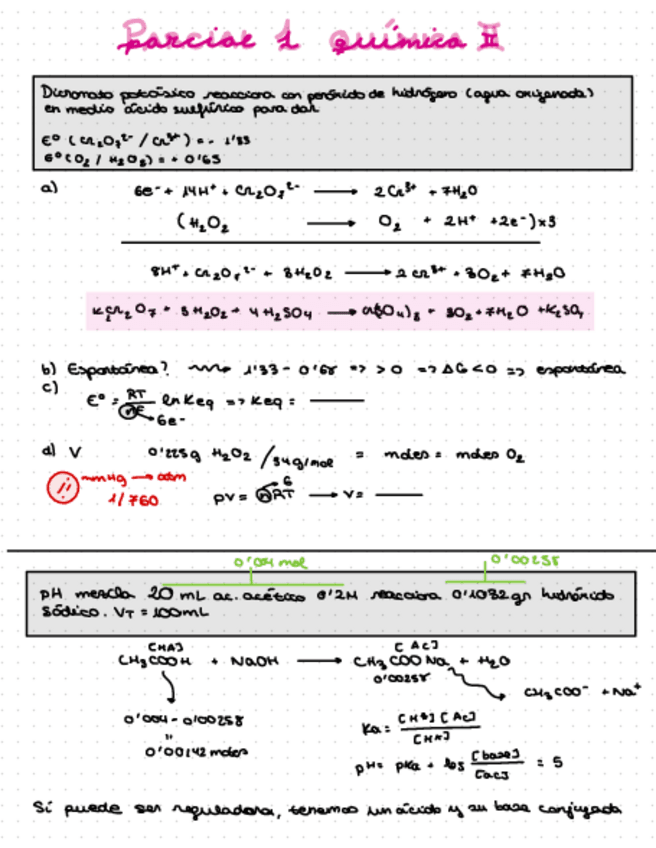 Parcial 1 química II
Dicromato potásico reacciona con peróxido de hidrógeno (agua oxigenada)
en medio ácido sulfúrico para dar
E° (Cr₂O₇²⁻ / Cr³⁺) = - 1'33
E° (O₂ / H₂O₂) = + 0'68
a) 6e⁻ + 14H⁺ + Cr₂O₇²⁻ → 2Cr³⁺ + 7H₂O
(H₂O₂ → O₂ + 2H⁺ + 2e⁻) x3
8H⁺ + Cr₂O₇²⁻ + 3H₂O₂ → 2Cr³⁺ + 3O₂ + 7H₂O
K₂Cr₂O₇ + 3H₂O₂ + 4H₂SO₄ → Cr(SO₄)₃ + 3O₂ + 7H₂O + K₂SO₄
b) Espontánea? 1'33 - 0'68 => > 0 => ΔG < 0 => espontánea
c) E° = RT/nF ln Keq => Keq =
6e⁻
d) V 0'225g H₂O₂ / 34g/mol = moles = moles O₂
!! mmHg → atm
1/760
6
pV = nRT → V =
0'004 mol 0'00258
pH mezcla 20 mL ac. acético 0'2M reacciona 0'1032 gr hidróxido
sódico. VT = 100mL
[HA] [Ac]
CH₃COOH + NaOH → CH₃COONa + H₂O
0'00258
CH₃COO⁻ + Na⁺
0'004 - 0'00258
"
0'00142 moles
Ka = [H⁺][Ac] / [HA]
pH = pKa + log [base] / [ac] = 5
Si puede ser reguladora, tenemos un ácido y su base conjugada